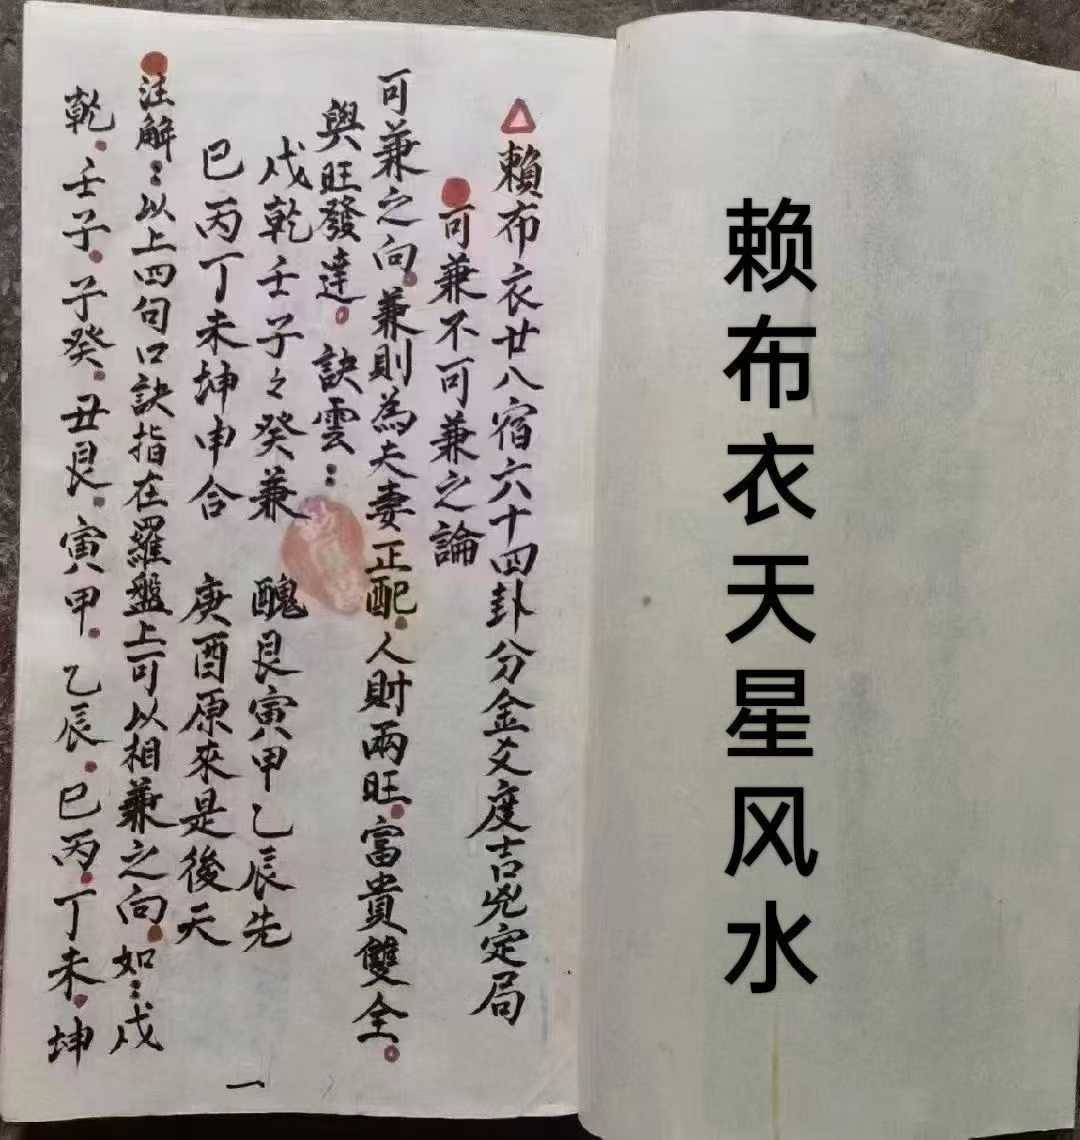 赖布衣天星风水
賴布衣廿八宿六十四卦分金爻度吉兇定局
可兼不可兼之論
可兼之向。兼則為夫妻正配。人財兩旺。富貴雙全。
與旺發達。訣雲：
戌乾壬子々癸兼 醜艮寅甲乙辰先
巳丙丁未坤申合 庚酉原來是後天
注解：以上四句口訣指在羅盤上可以相兼之向。如：戌
乾。壬子。子癸。丑艮。寅甲。乙辰。巳丙。丁未。坤
一